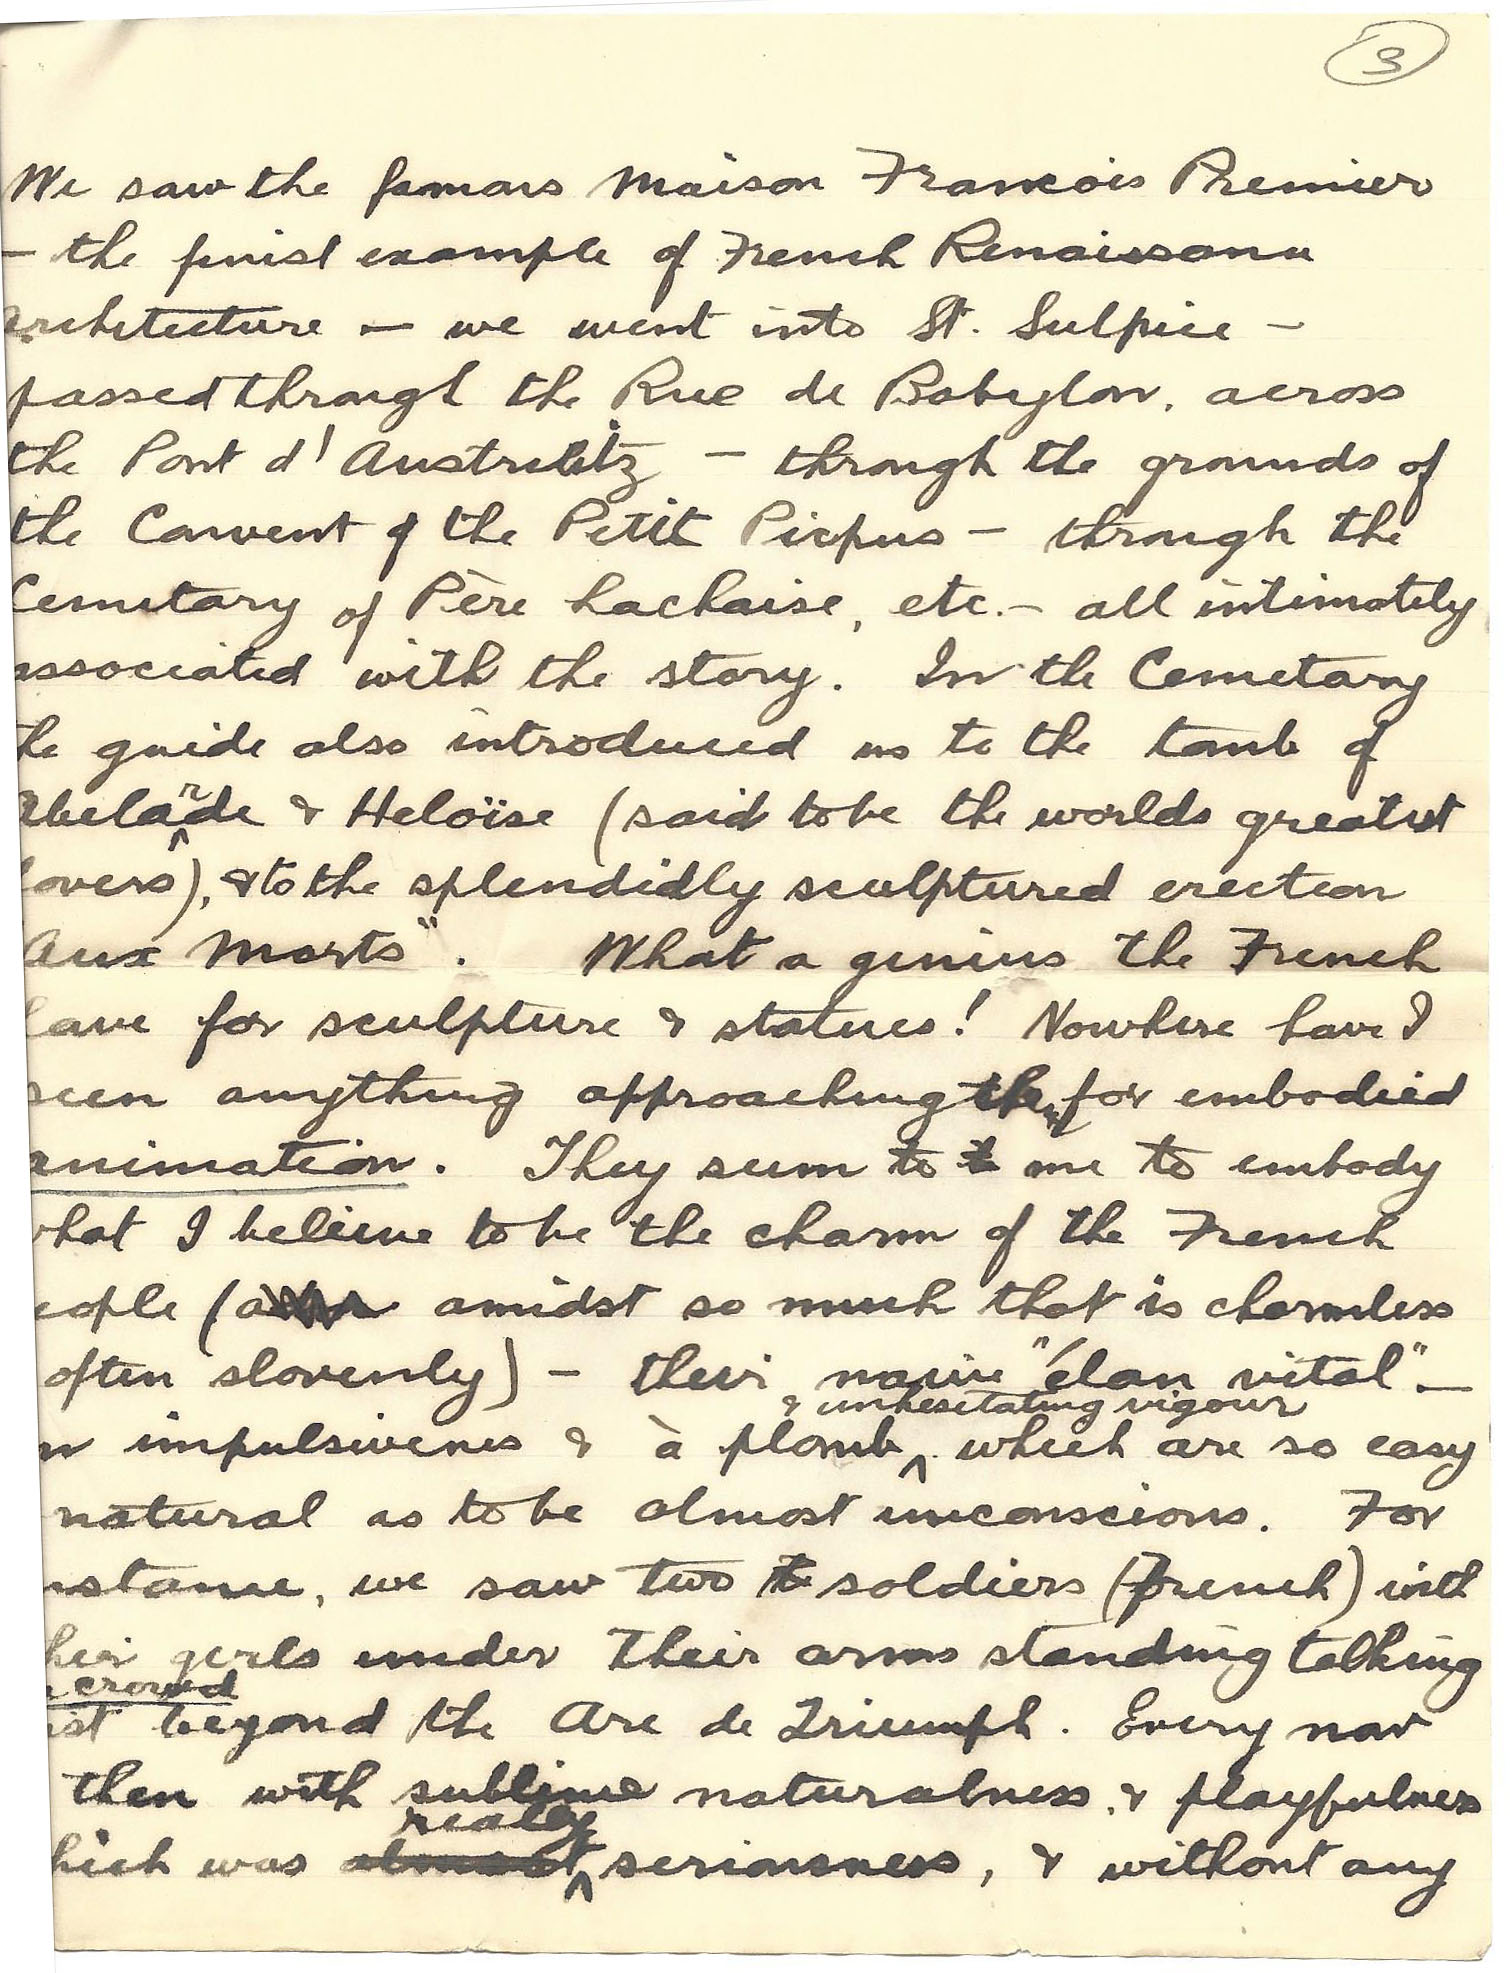 3
We saw the famous Maison Francois Premier
- the finest example of French Renaissance
Architecture - we went into St. Sulpice -
passed through the Rue de Babylon, across
the Pont d' Austrelitz - through the grounds of
the Convent of the Petit Picpus - through the
Cemetary of Père Lachaise, etc. - all intimately
associated with the story. In the Cemetary
the guide also introduced us to the tomb of
Abelarde & Heloïse (said to be the worlds greatest
lovers), & to the splendidly sculptured erection
Aux Morts". What a genius the French
have for sculpture & statues! Nowhere have I
seen anything approaching them for embodied
animation. They seem to me to embody
what I believe to be the charm of the French
eople (amidst so much that is charmless
often slovenly) - their naive "élan vital" -
& unhesitating vigour
n impulsiveness & à plomb, which are so easy
natural as to be almost unconscious. For
nstance, we saw two soldiers (French) with
heir girls under their arms standing talking
crowd
ust beyond the Arc de Triumph. Every now
then with sublime naturalness, & playfulness
really
hich was almost seriousness, & without any